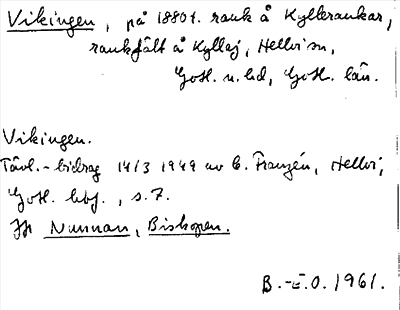 Vikingen, på 1880t. rauk å Kyllraukar,
raukfält å Kyllaj, Hellvi sn,
Gotl. n. hd, Gotl. län.
Vikingen.
Tävl.-bidrag 14/3 1949 av E. Franzén, Hellvi,
Gotl. hbf., s. 7.
Jfr Nunnan, Biskopen.
B.-E.O. 1961.